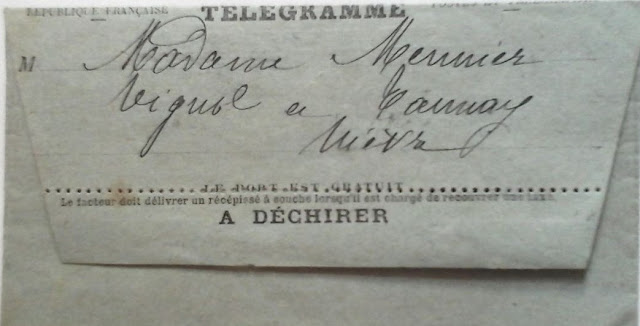 RÉPUBLIQUE FRANÇAISE
TÉLÉGRAMME
POSTES ET
M Madame Meunier
Vignol a Tannay
Nièvre
LE PORT EST GRATUIT
Le facteur doit délivrer un récépissé à souche lorsqu'il est chargé de recouvrer une taxe.
A DÉCHIRER